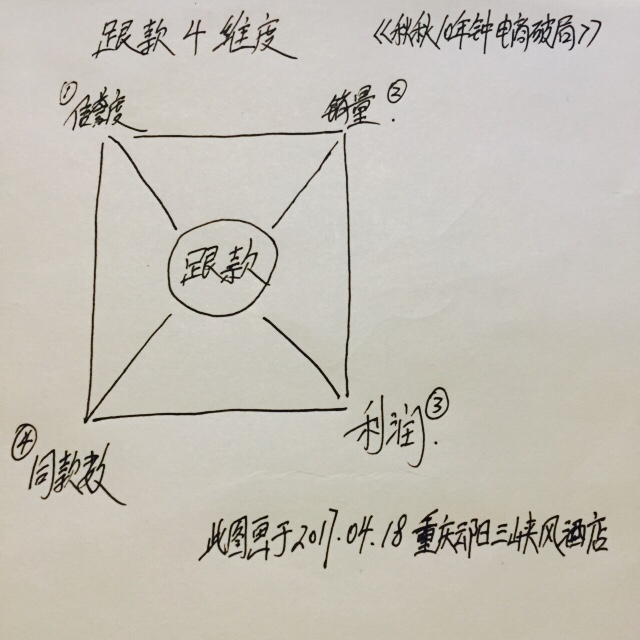 跟款4维度
《秋秋10分钟电商破局》
①
信誉度
销量 ②
跟款
利润 ③
④
同款数
此图画于2017.04.18 重庆云阳三峡风酒店